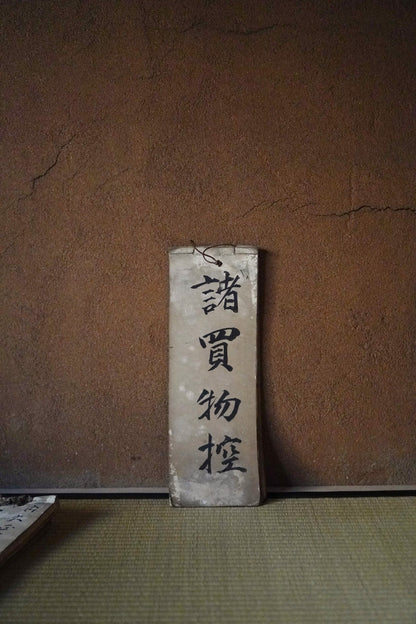 諸買物控